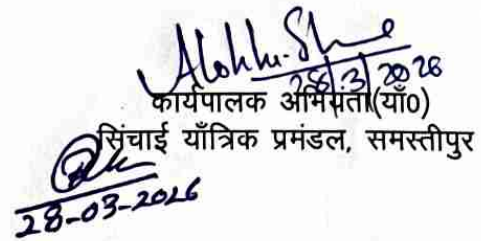 28/3/2026
कार्यपालक अभियंता(याँ0)
सिंचाई याँत्रिक प्रमंडल, समस्तीपुर
28-03-2026